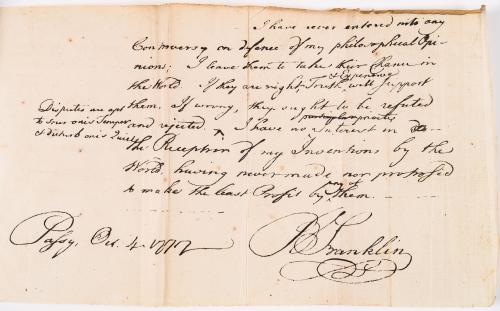 I have never entered into any
Controversy in defence of my philosophical Opi-
nions; I leave them to take their Chance in
& Experience
the World. If they are right, Truth will support
them. If wrong, they ought to be refuted
Disputes are apt
to sour one's Temper
& disturb one's Quiet
and rejected. ^ I have no Interest in
the Reception of my Inventions by the
World, having never made nor proposed
any of
to make the least Profit by them.
Passy, Oct. 4. 1777
B Franklin